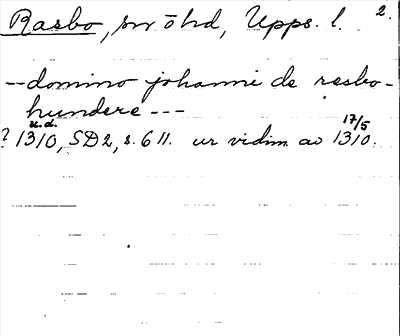 Rasbo, sn o hd, Upps. l. 2.
-- domino johanni de rasbo-
hundere ---
u.d. 17/5
? 1310, SD2, s. 611. ur vidim. av 1310.